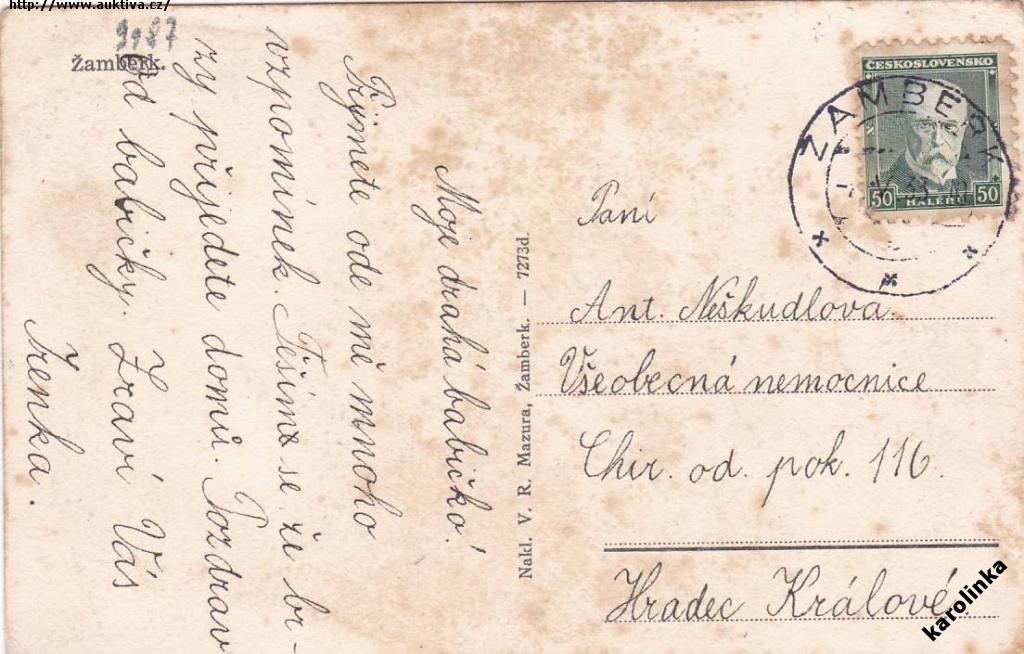 http://www.auktiva.cz/
9187
Žamberk.
Moje drahá babičko!
Přijmete ode mě mnoho
vzpomínek. Těšíme se že br-
zy přijedete domů. Pozdrav
od babičky. Zdraví Vás
Irenka.
Nakl. V. R. Mazura, Žamberk. — 7273d.
ČESKOSLOVENSKO
50 HALÉŘŮ 50
ŽAMBERK
Paní
Ant. Neškudlova.
Všeobecná nemocnice
Chir. od. pok. 116.
Hradec Králové.
karolinka